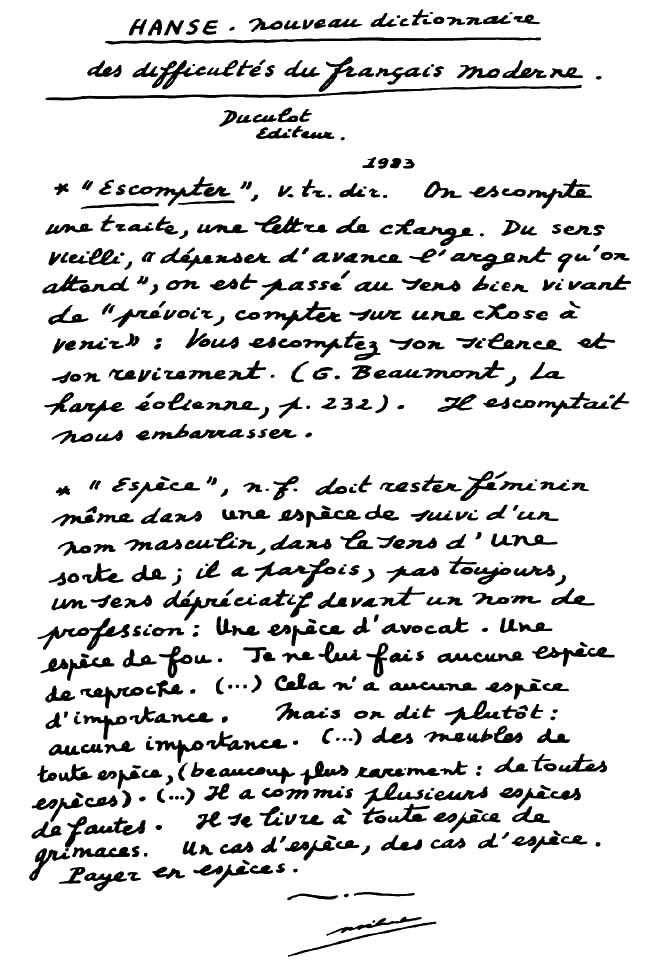 HANSE . nouveau dictionnaire
des difficultés du français moderne .
Duculot
Editeur .
1983
* " Escompter ", v. tr. dir. On escompte
une traite, une lettre de change. Du sens
vieilli, « dépenser d'avance l'argent qu'on
attend ", on est passé au sens bien vivant
de " prévoir, compter sur une chose à
venir » : Vous escomptez son silence et
son revirement. ( G. Beaumont, La
harpe éolienne, p. 232 ) . Il escomptait
nous embarrasser .
* " Espèce ", n. f. doit rester féminin
même dans une espèce de suivi d'un
nom masculin, dans le sens d' une
sorte de ; il a parfois, pas toujours,
un sens dépréciatif devant un nom de
profession : Une espèce d'avocat . Une
espèce de fou. Je ne lui fais aucune espèce
de reproche. (...) Cela n'a aucune espèce
d'importance . Mais on dit plutôt :
aucune importance. (...) des meubles de
toute espèce, (beaucoup plus rarement : de toutes
espèces). (...) Il a commis plusieurs espèces
de fautes . Il se livre à toute espèce de
grimaces. Un cas d'espèce, des cas d'espèce .
Payer en espèces .